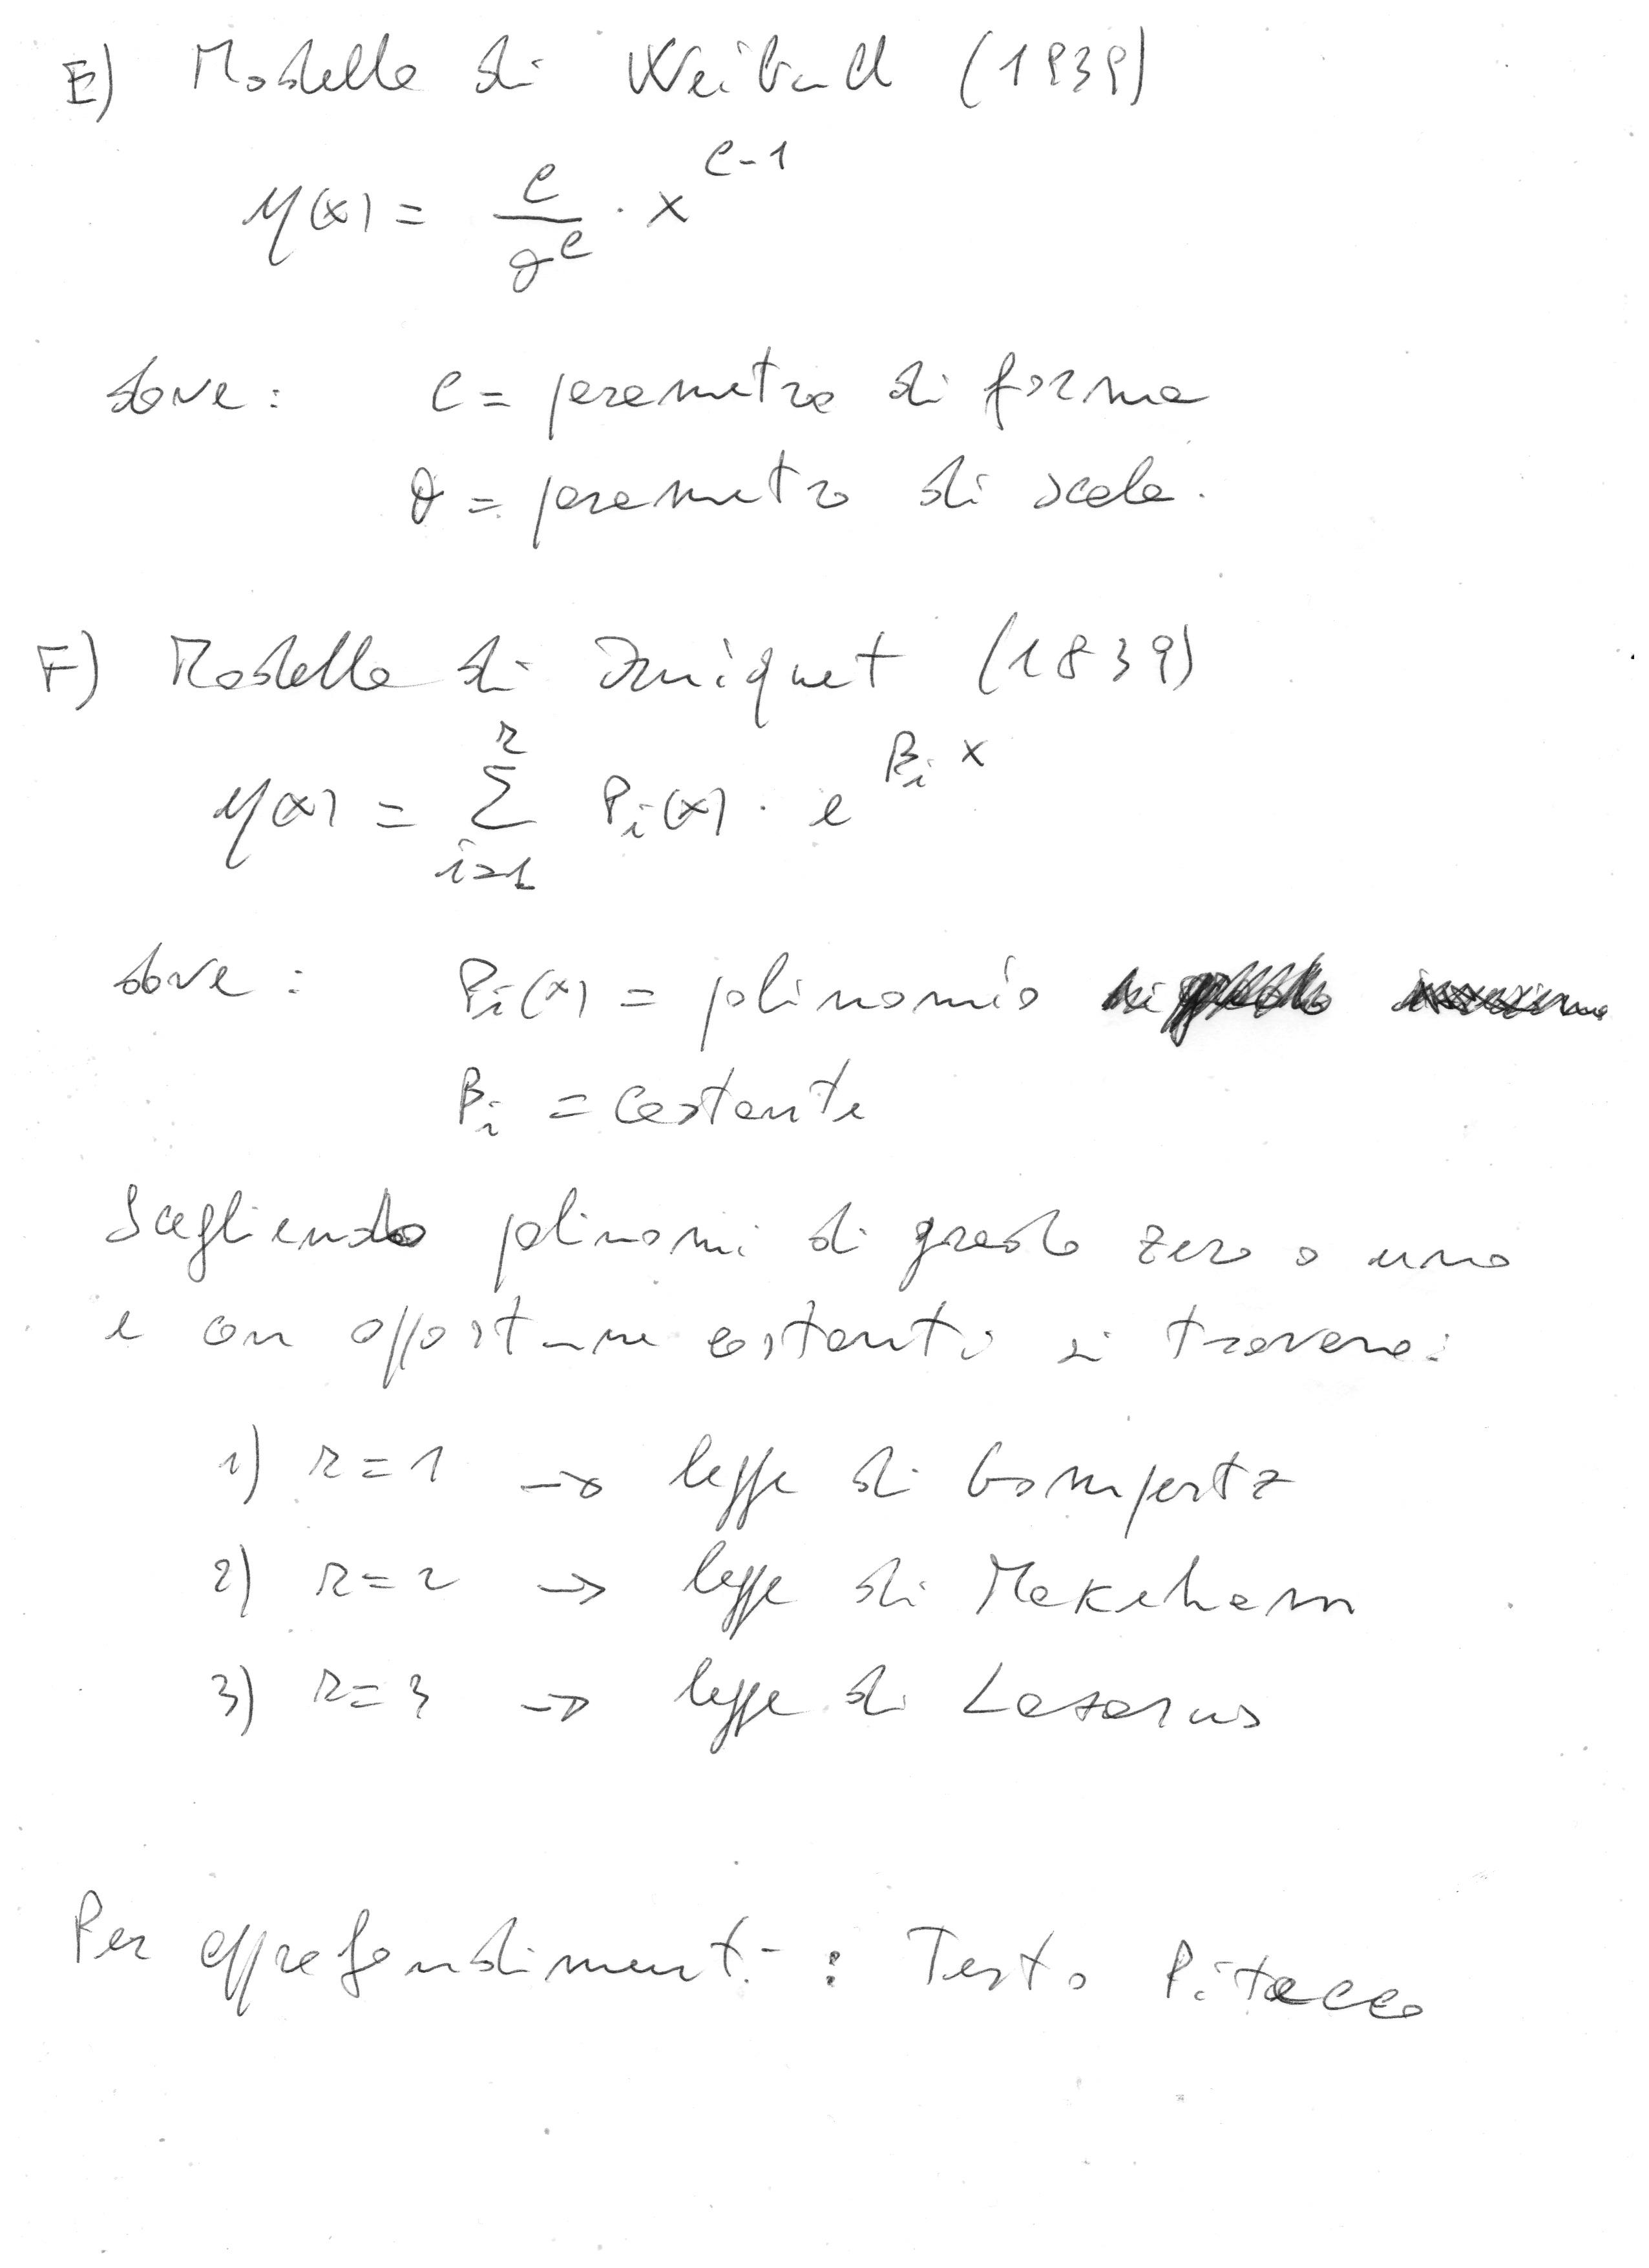 E) Modello di Weibull (1939)
μ(x) = c/θ^c · x^(c-1)
dove: c = parametro di forma
θ = parametro di scala.
F) Modello di Quiquet (1839)
μ(x) = Σ_{i=1}^{r} P_i(x) · e^(β_i x)
dove: P_i(x) = polinomio
β_i = costante
Scegliendo polinomi di grado zero o uno
e con opportune costanti si trovano:
1) r=1 → legge di Gompertz
2) r=2 → legge di Makeham
3) r=3 → legge di Lazarus
Per approfondimenti : Testo Pitacco